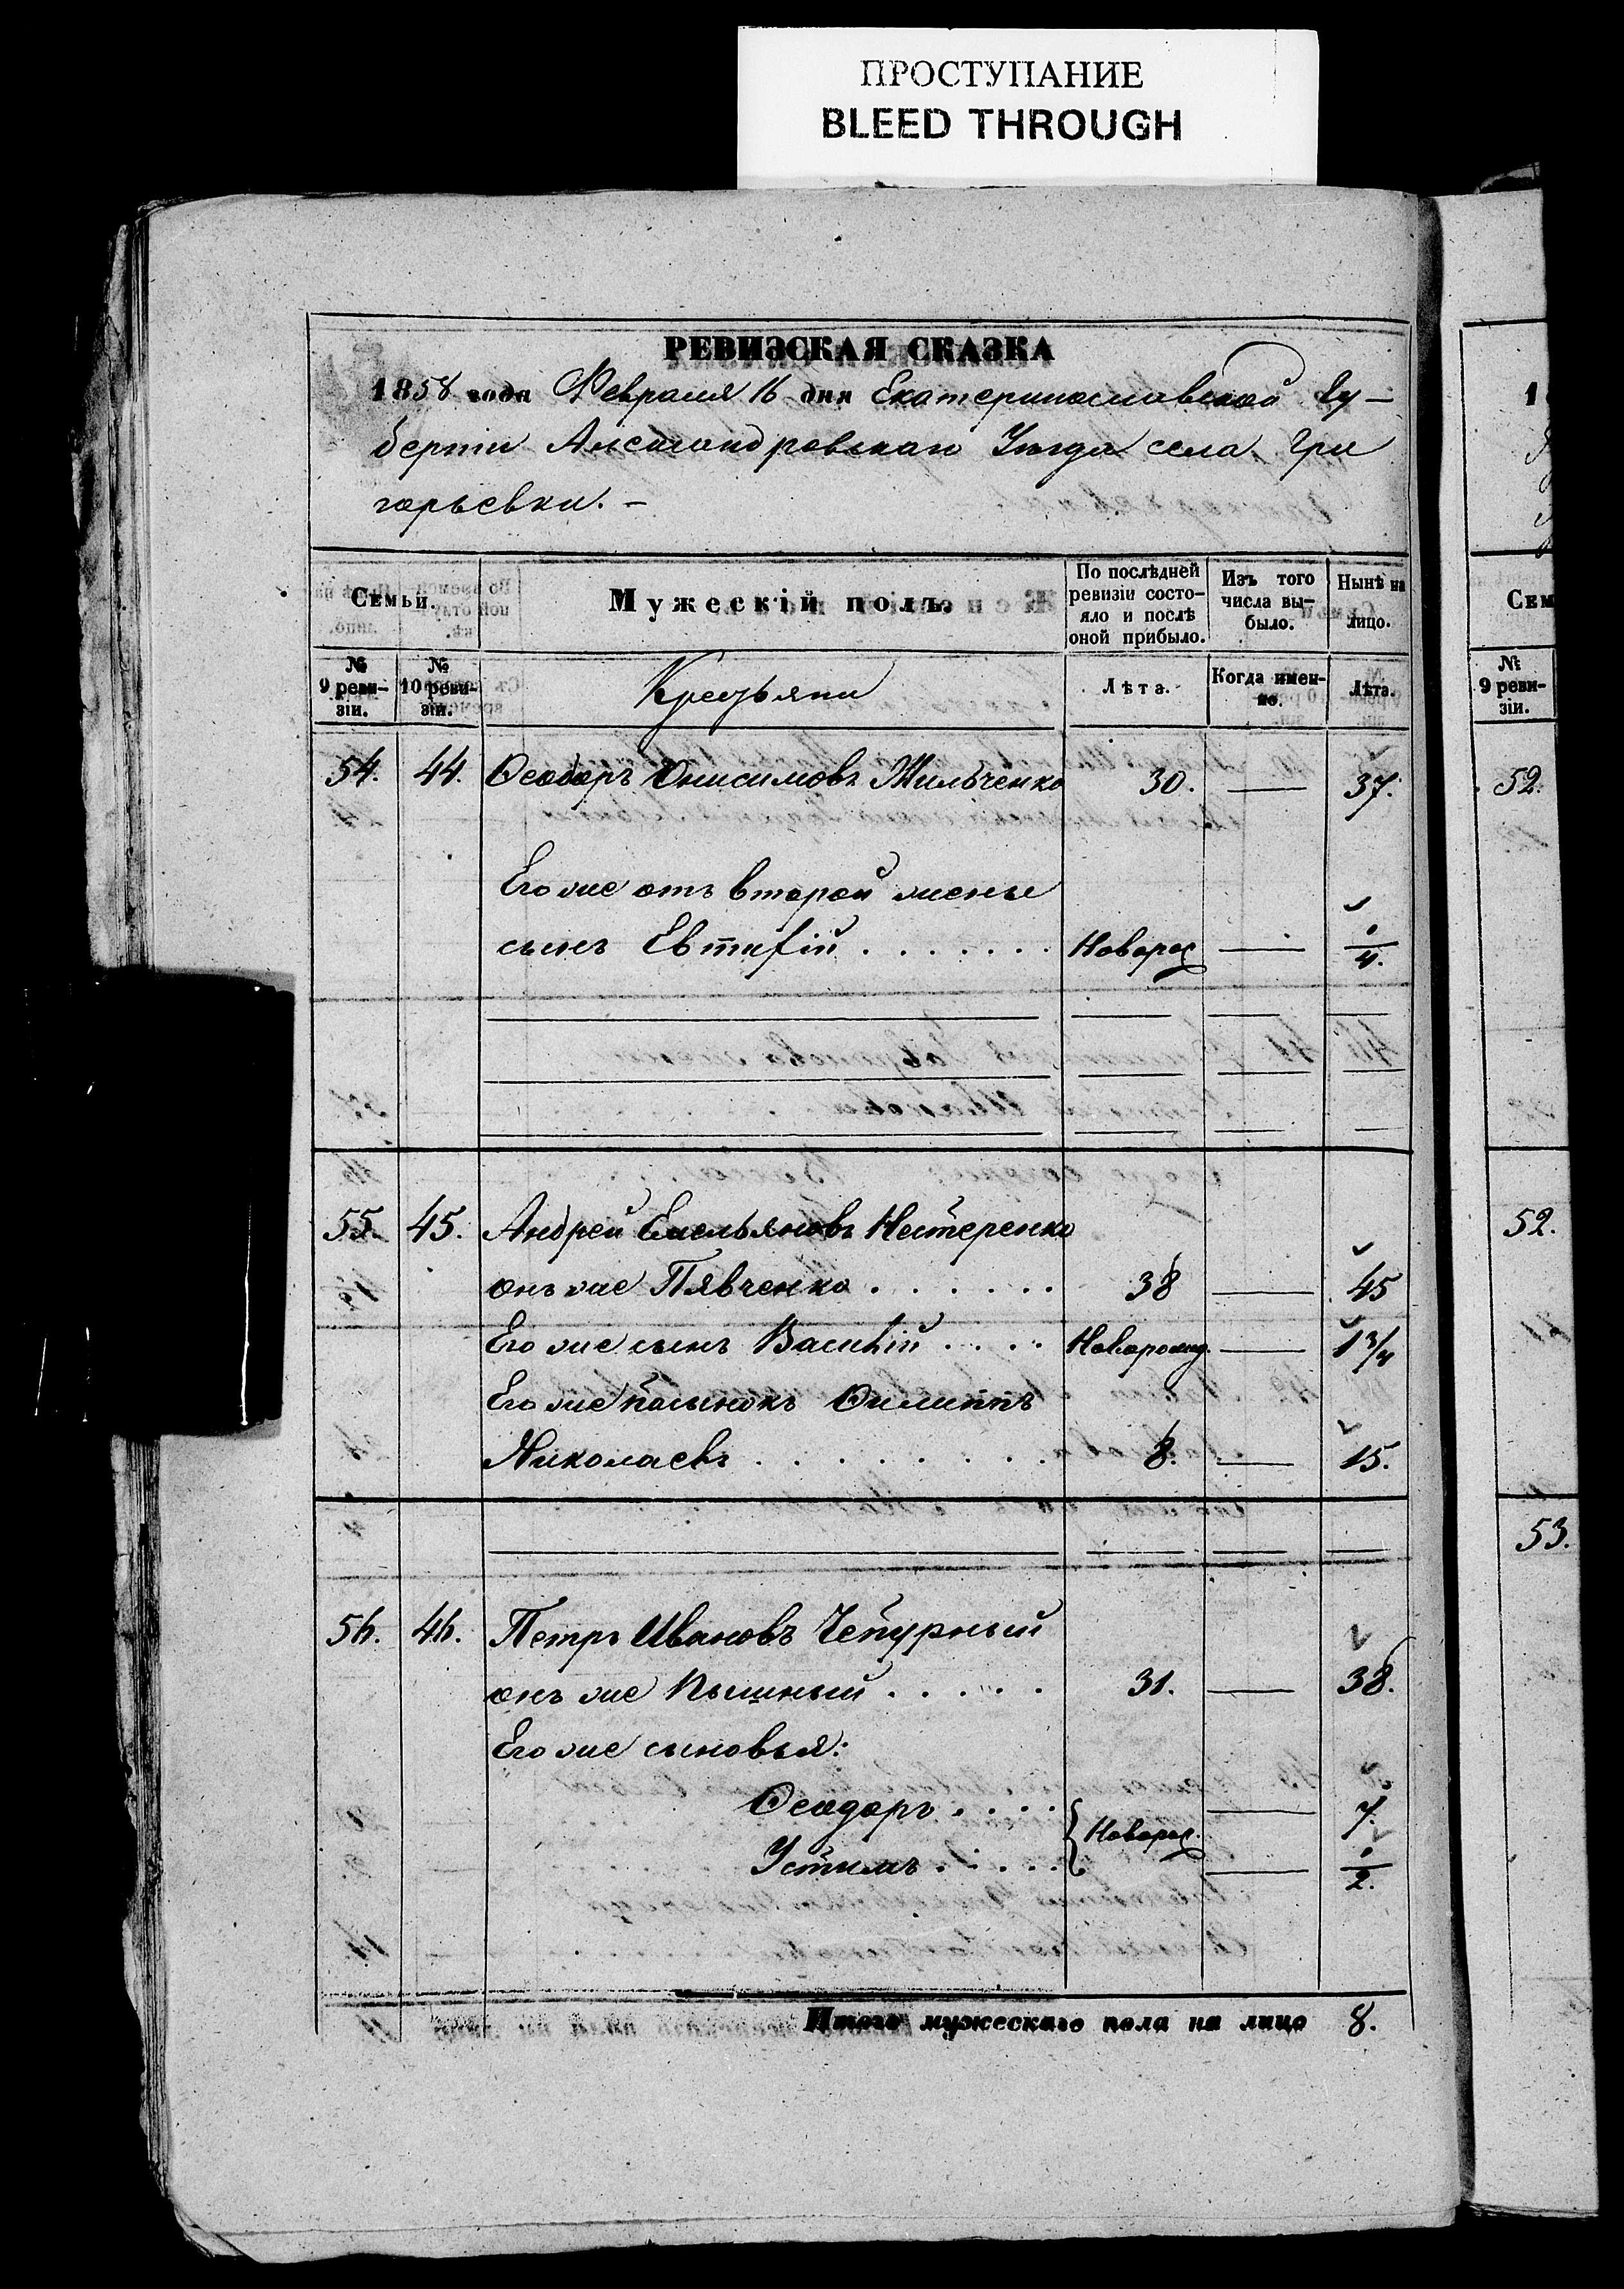 ПРОСТУПАНИЕ
BLEED THROUGH
РЕВИЗСКАЯ СКАЗКА
1858 года Февраля 16 дня Екатеринославской Гу-
берніи Александровскаго Уѣзда села Гри
горьевки. -
Семьи. Мужескій полъ. По послѣдней ревизіи состо- яло и послѣ оной прибыло. Изъ того числа вы- было. Нынѣ на лицо.
№ 9 реви- зіи. № 10 реви- зіи. Крестьяни Лѣта. Когда имен- но. Лѣта.
54. 44. Ѳеодоръ Онисимовъ Жильченко 30. — 37.
Его же отъ второй жены
сынъ Евтифій . . . . . . . Новорож — 1/4.
55. 45. Андрей Емельяновъ Нестеренко
онъ же Пявченко . . . . . . 38 — 45
Его же сынъ Василій . . . . Новорожд. — 1 3/4
Его же пасынокъ Филиппъ
Николаевъ . . . . . . . . 8. — 15.
56. 46. Петръ Ивановъ Чепурный
онъ же Пышный . . . . . 31. — 38.
Его же сыновья:
Ѳеодоръ . . . . Новорож. — 7.
Устимъ . . . . . — 1/2.
Итого мужескаго пола на лицо 8.
1
Сем
№ 9 реви- зіи.
52.
52.
53.